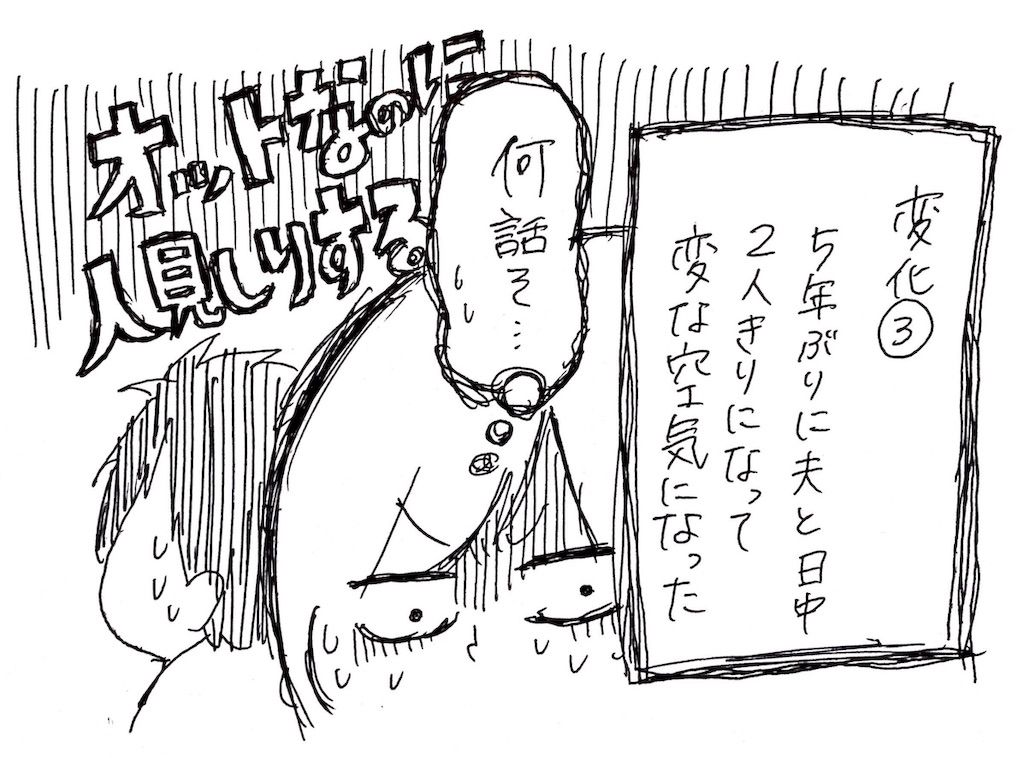 変化③
5年ぶりに夫と日中
2人きりになって
変な空気になった
何
話そ…
オットなのに
人見しりする。